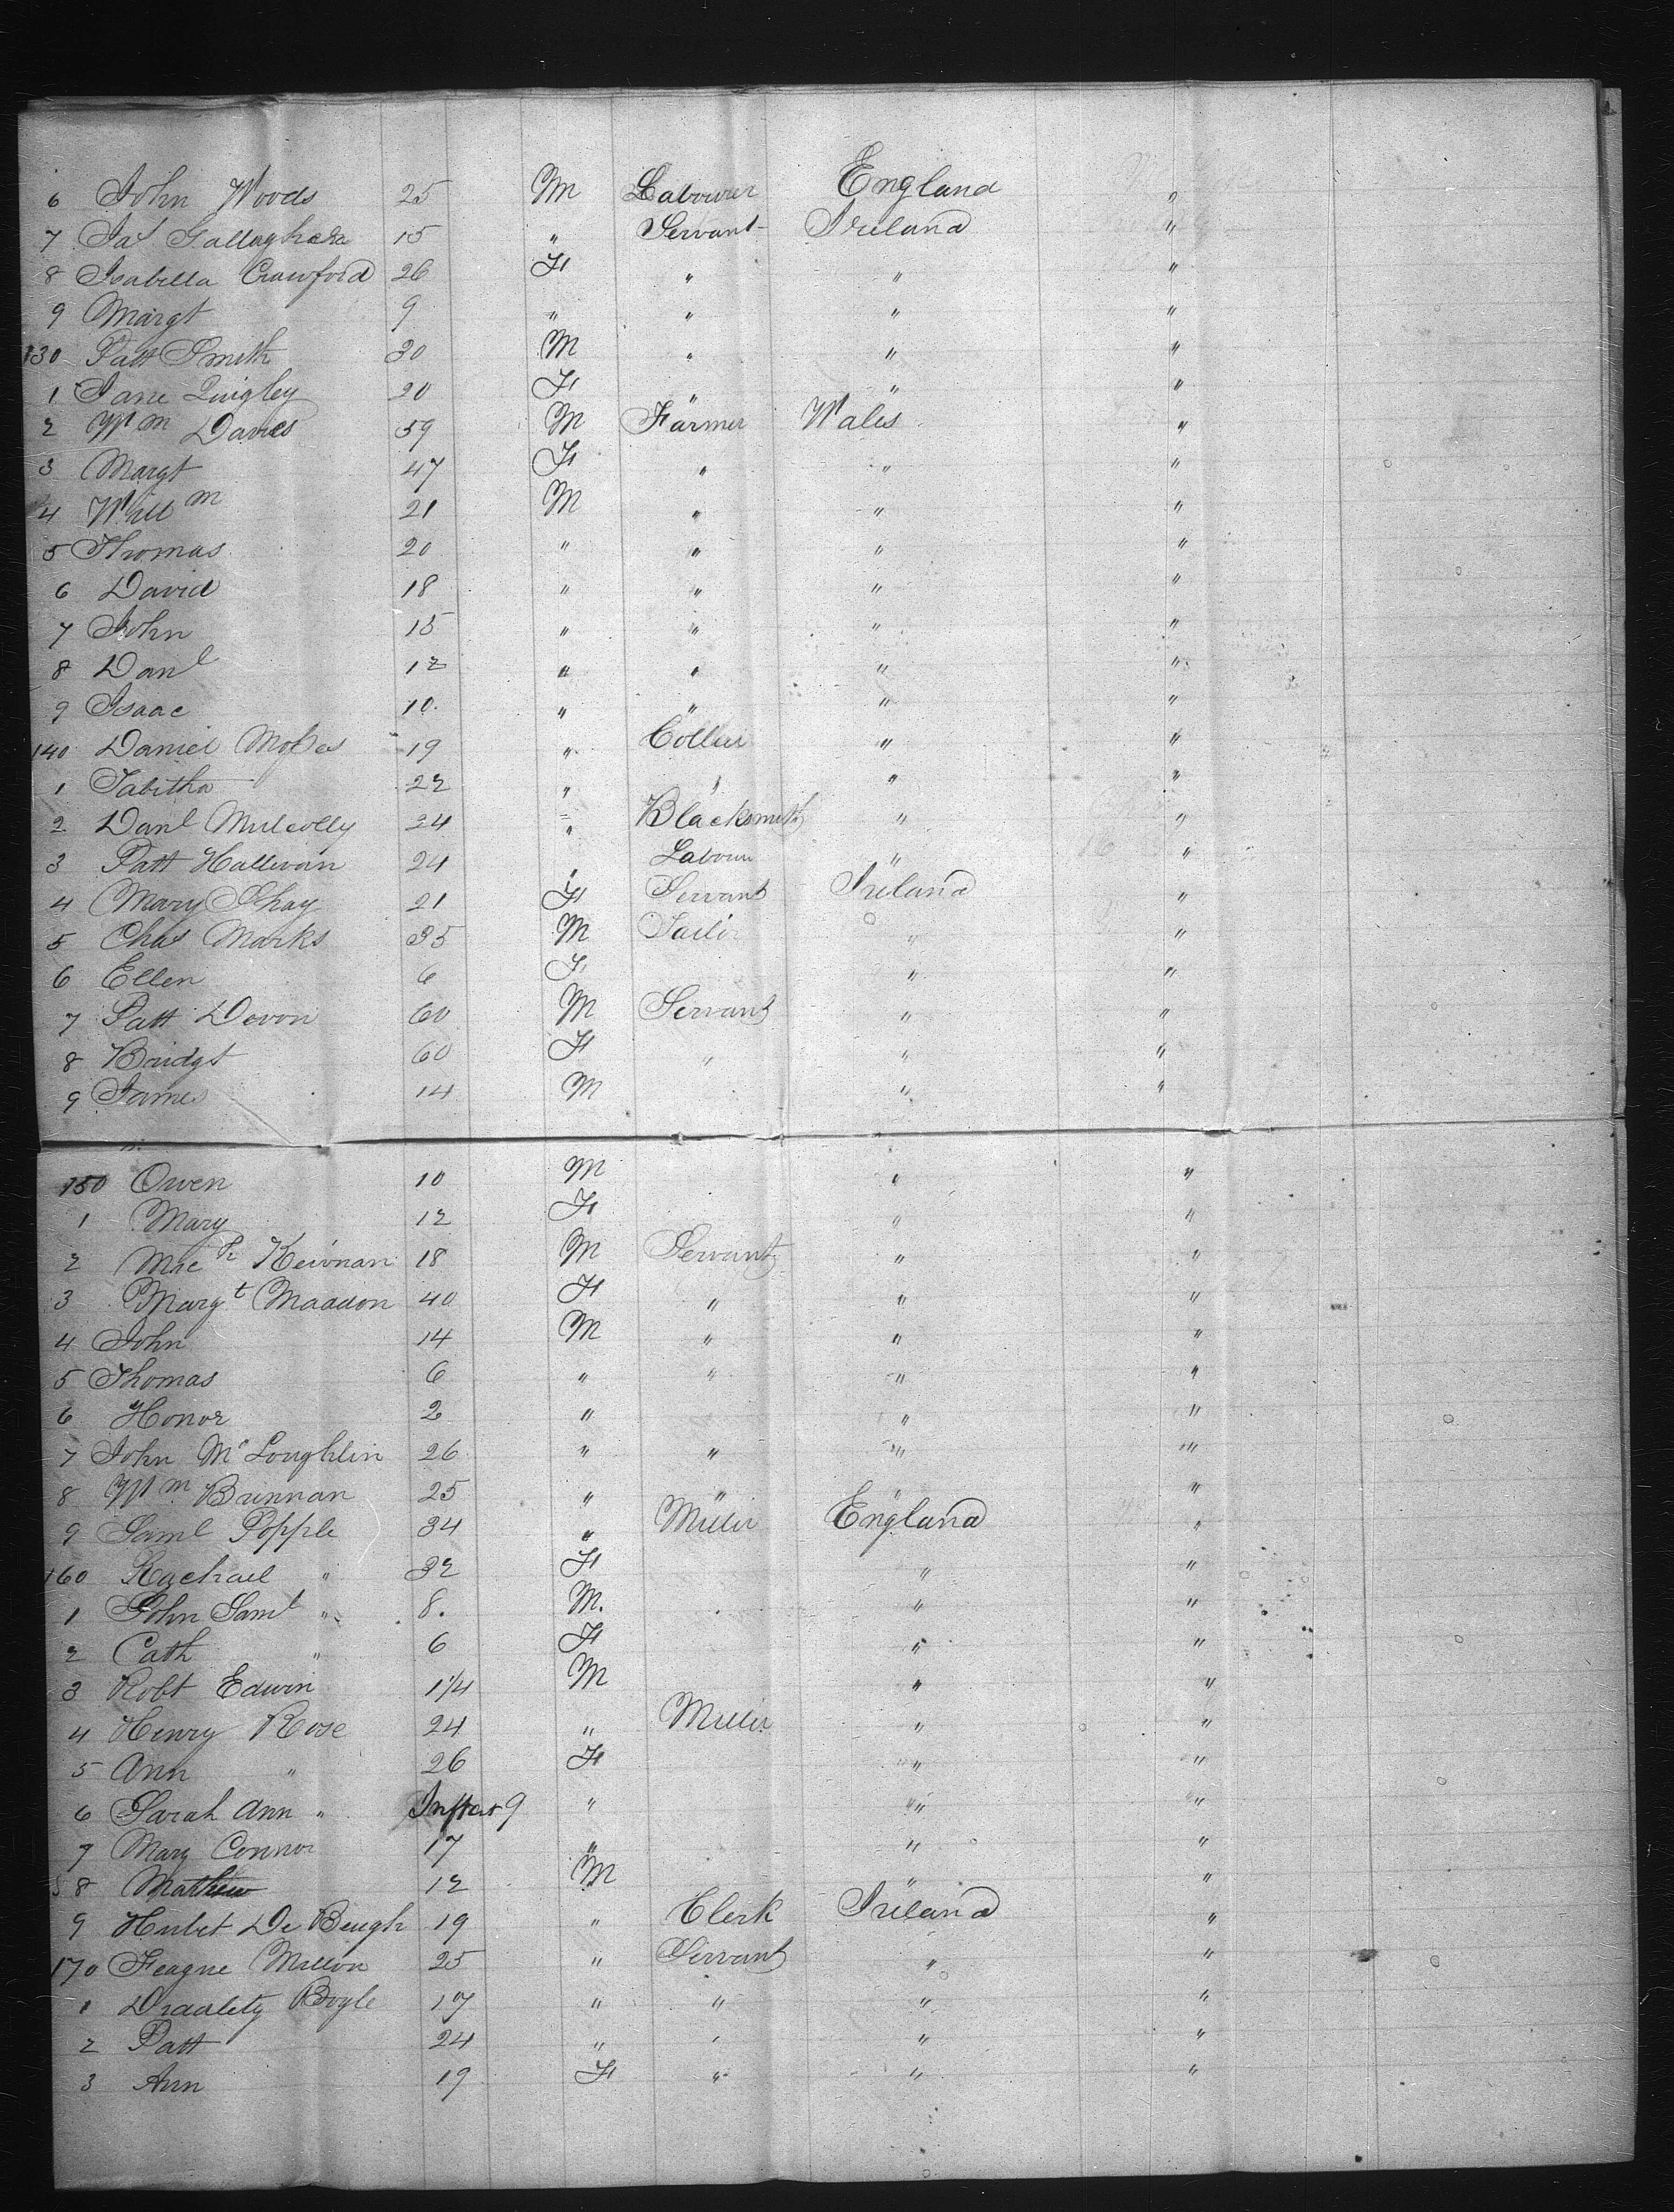 6 John Woods 25 M Labourer England "
7 Jas Gallagher 15 " Servant Ireland "
8 Isabella Crawford 26 F " " "
9 Margt 9 " " " "
130 Patt Smith 30 M " " "
1 Jane Quigley 20 F " " "
2 Wm Davies 59 M Farmer Wales "
3 Margt 47 F " " "
4 Willm 21 M " " "
5 Thomas 20 " " " "
6 David 18 " " " "
7 John 15 " " " "
8 Danl 12 " " " "
9 Isaac 10 " " " "
140 Daniel Moses 19 " Collier " "
1 Tabitha 22 " " " "
2 Danl 24 " Blacksmith " "
3 Patt Hallivan 24 " Labour " "
4 Mary Shay 21 F Servant Ireland "
5 Chas Marks 35 M " "
6 Ellen 6 F " "
7 Patt Devon 60 M Servant " "
8 Bridgt 60 F " " "
9 James 14 M " "
150 Owen 10 M " "
1 Mary 12 F " "
2 Mich Keirnan 18 M Servant " "
3 Margt Maddon 40 F " " "
4 John 14 M " " "
5 Thomas 6 " " " "
6 Honor 2 " " "
7 John McLoughlin 26 " " " "
8 Wm Brinnan 25 " " " "
9 Saml Popple 34 " Miller England "
160 Rachael " 32 F " "
1 John Saml " 8. M. " "
2 Cath " 6 F " "
3 Robt Edwin 1 1/4 M " "
4 Henry Rose 24 " Miller " "
5 Ann " 26 F " "
6 Sarah Ann " 9 " " "
7 Mary Connor 17 " " "
8 Mathew 12 M " "
9 De 19 " Clerk Ireland "
170 25 " Servant " "
1 Boyle 17 " " " "
2 Patt 24 " " " "
3 Ann 19 F " " "